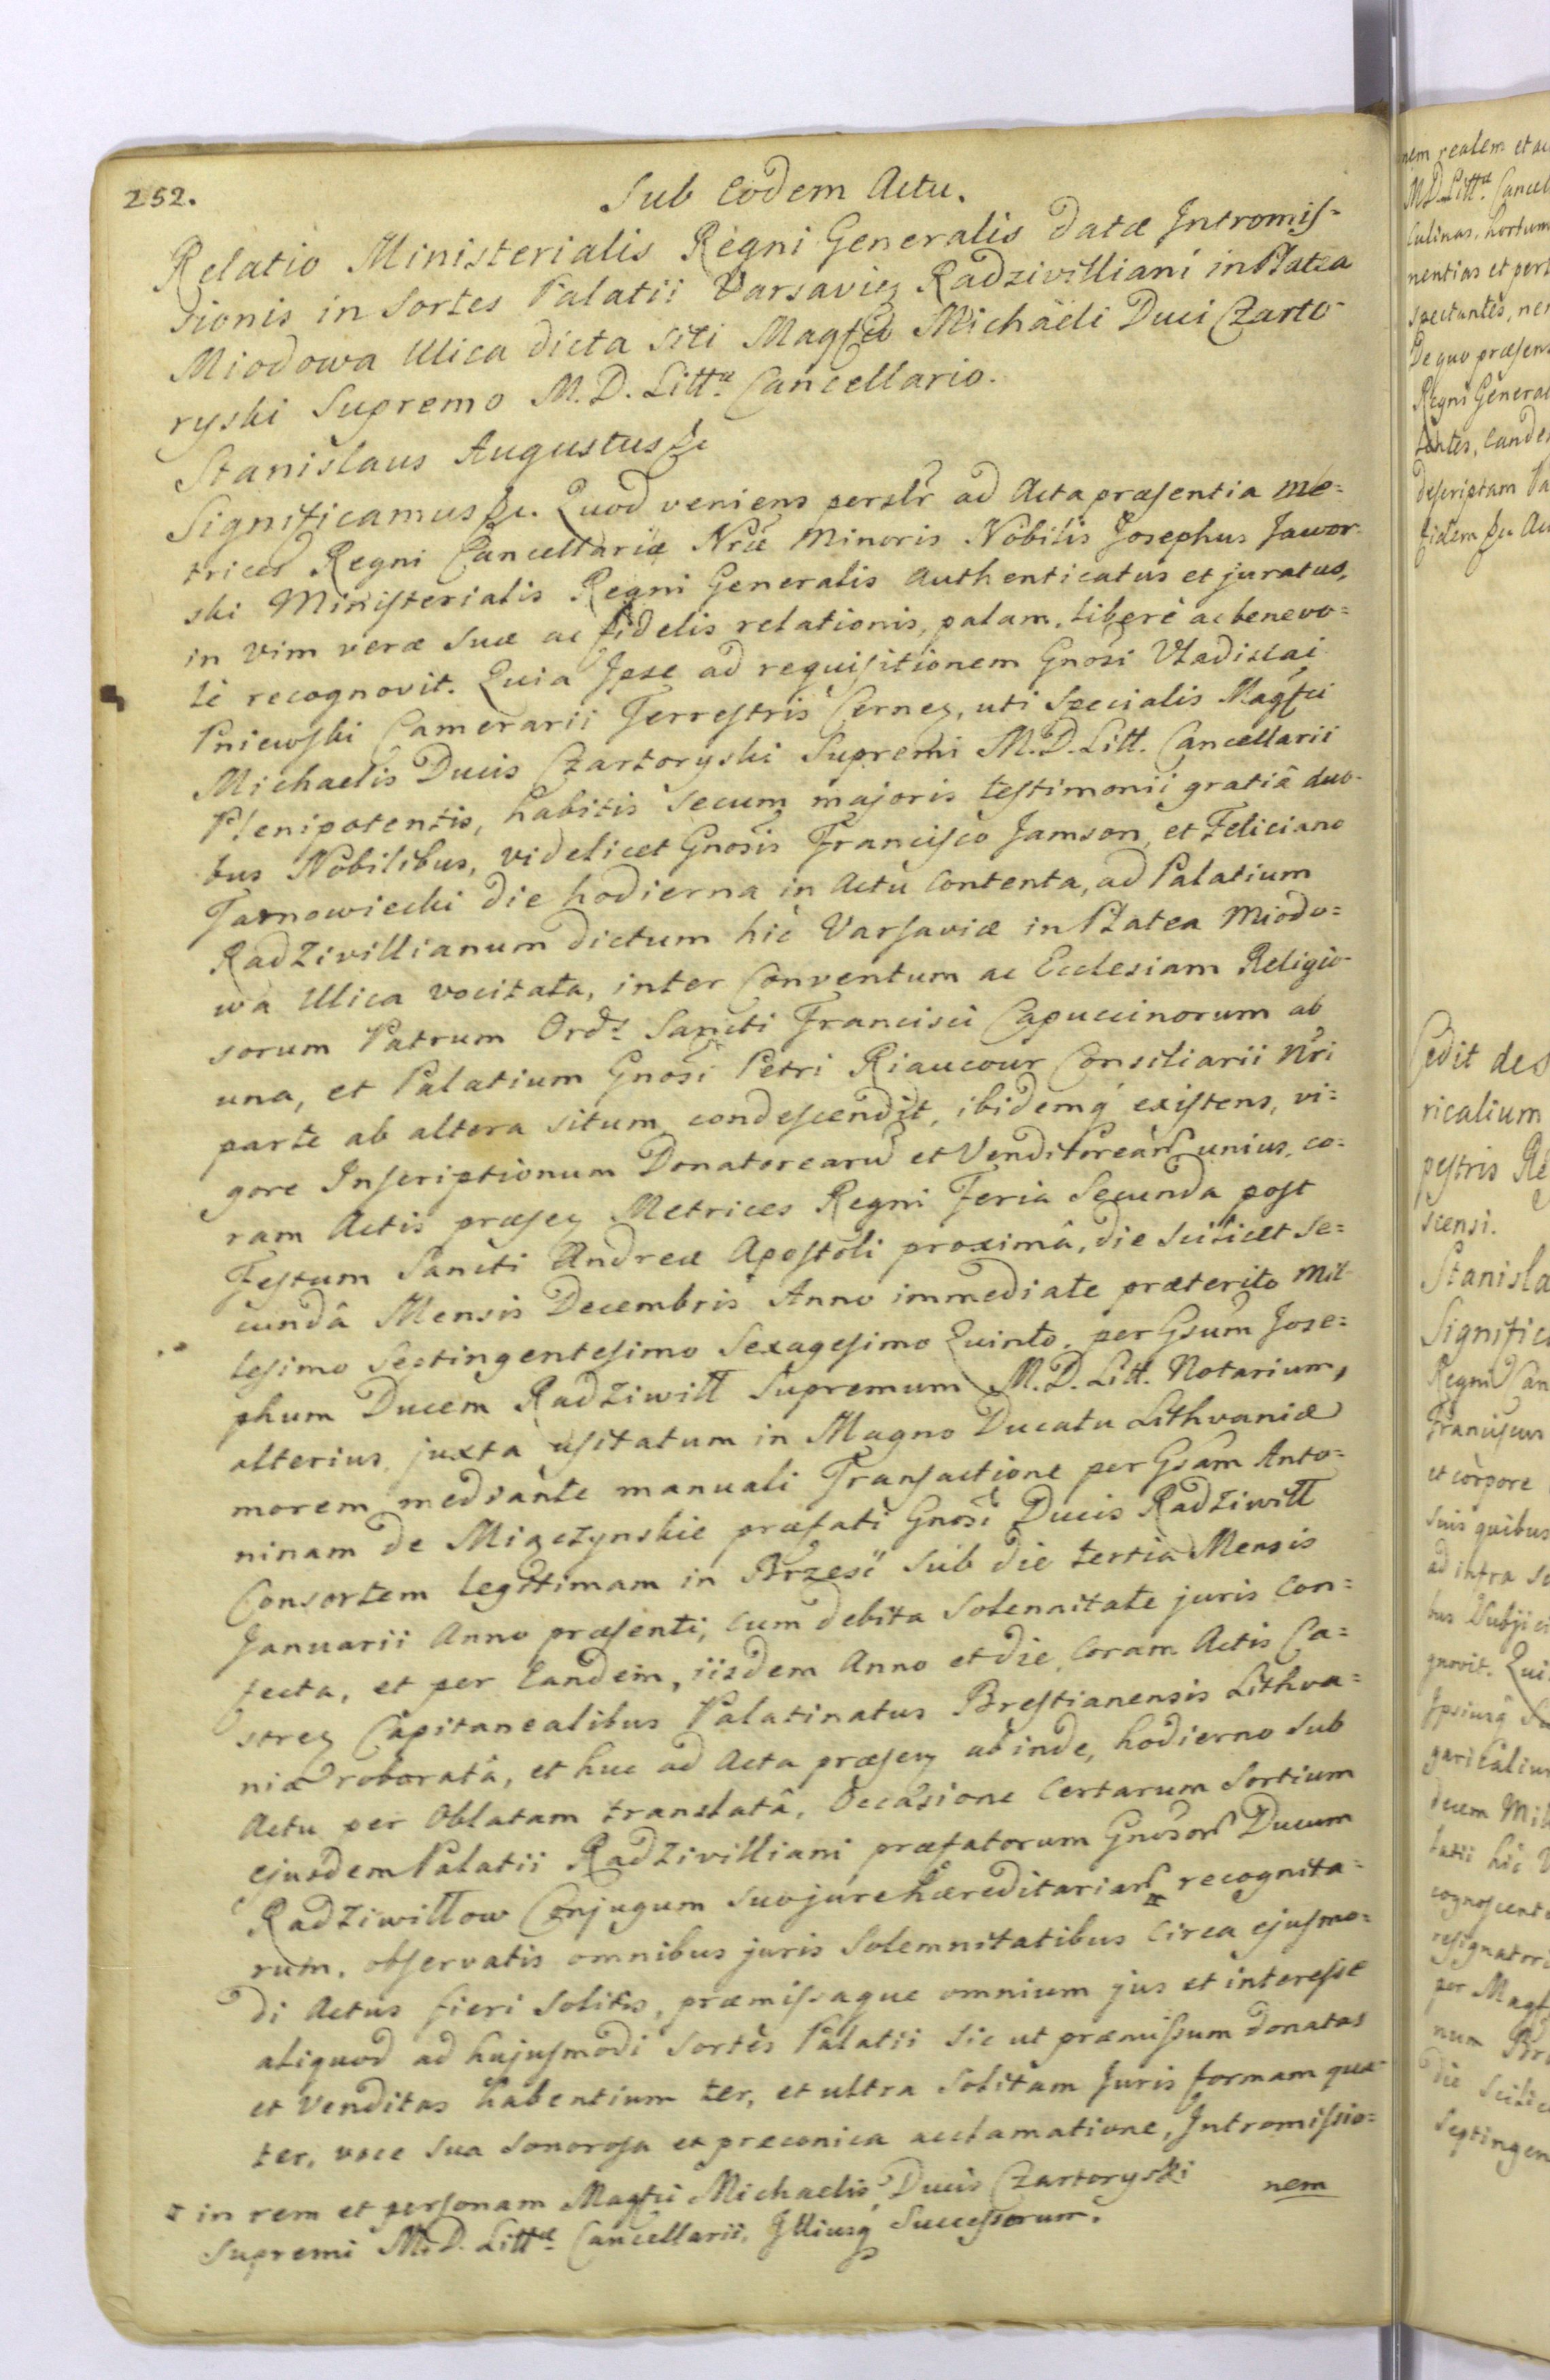 252.
Sub Eodem Actu.
Relatio Ministerialis Regni Generalis datæ Intromis=
sionis in Sortes Palatii Varsavieȝ Radzivilliani in Platea
Miodowa Ulica dicta siti Magfco Michaëli Duci Czarto-
ryski Supremo M. D. Littæ Cancellario.
Stanislaus Augustus &c
Significamus &c. Quod veniens persłr ad Acta præsentia Me=
trices Regni Cancellariæ Nræ Minoris Nobilis Josephus Jawor-
ski Ministerialis Regni Generalis Authenticatus et juratus,
in vim veræ suæ ac fidelis relationis, palam, liberè ac benevo=
lè recognovit. Quia Ipse ad requisitionem Gnosi Vladislai
Pniewski Camerarii Terrestris Cerneȝ, uti Specialis Magfci
Michaelis Ducis Czartoryski Supremi M. D. Litt. Cancellarii
Plenipotentis, habitis secum majoris testimonii gratiâ duo-
bus Nobilibus, videlicet Gnosis Francisco Jamson, et Feliciano
Tarnowiecki die hodierna in Actu Contenta, ad Palatium
Radzivillianum dictum hic Varsaviæ in Platea Miodo=
wa Ulica vocitata, inter Conventum ac Ecclesiam Religio-
sorum Patrum Ords Sancti Francisci Capuccinorum ab
una, et Palatium Gnosi Petri Riaucour Consiliarii Nri
parte ab altera situm condescendit, ibidemq́ existens, vi=
gore Inscriptionum Donatorearū et Venditorearū unius, co=
ram Actis præseȝ Metrices Regni Feria Secunda post
Festum Sancti Andreæ Apostoli proximâ, die scilicet se=
cundâ Mensis Decembris Anno immediate præterito Mil-
lesimo Septingentesimo Sexagesimo Quinto, per Gsum Jose=
phum Ducem Radziwiłł Supremum M. D. Litt. Notarium,
alterius, juxta usitatum in Magno Ducatu Lithvaniæ
morem mediante manuali Transactione per Gsam Anto=
ninam de Miączynskie præfati Gnosi Ducis Radziwiłł
Consortem legittimam in Brzesi sub die tertia Mensis
Januarii Anno præsenti, cum debita Solennitate juris con=
fecta, et per Eandem, iisdem Anno et die, Coram Actis Ca=
streȝ Capitanealibus Palatinatus Brestianensis Lithva=
niæ roboratâ, et huc ad Acta præseȝ abinde, hodierno sub
Actu per Oblatam translatâ, Occasione Certarum Sortium
ejusdem Palatii Radzivilliani præfatorum Gnosorū Ducum
Radziwiłłow Conjugum suo jure hæreditariarū # recognita=
rum, observatis omnibus juris Solemnitatibus circa ejusmo=
di Actus fieri solitis, præmissaque omnium jus et interesse
aliquod ad hujusmodi Sortes Palatii sic ut præmissum donatas
et venditas habentium ter, et ultra solitam Juris formam qua-
ter, voce sua sonorosa et præconica acclamatione, Intromissio=
nem
# in rem et personam Magfci Michaelis Ducis Czartoryski
Supremi M. D. Littæ Cancellarii, Illiusq́ Successorum.
nem realem et ac
M D. Littæ Cancel
Culinas, hortum
nentias et pert
spectantes, ne
De quo præsens
Regni General
descriptam Pa
fidem &c Ac
Cedit de
ricalium
pestris Re
scensi.
Stanisla
Signific
Regni Can
Franciscus
et corpore
suis quibus
ad infra
bus Subjici
gnovit. Qui
Ipsiusq́
garicaliu
decem Mil
latii hic V
cognoscent
resignator
per Magf
num Br
die Scilic
Septingen